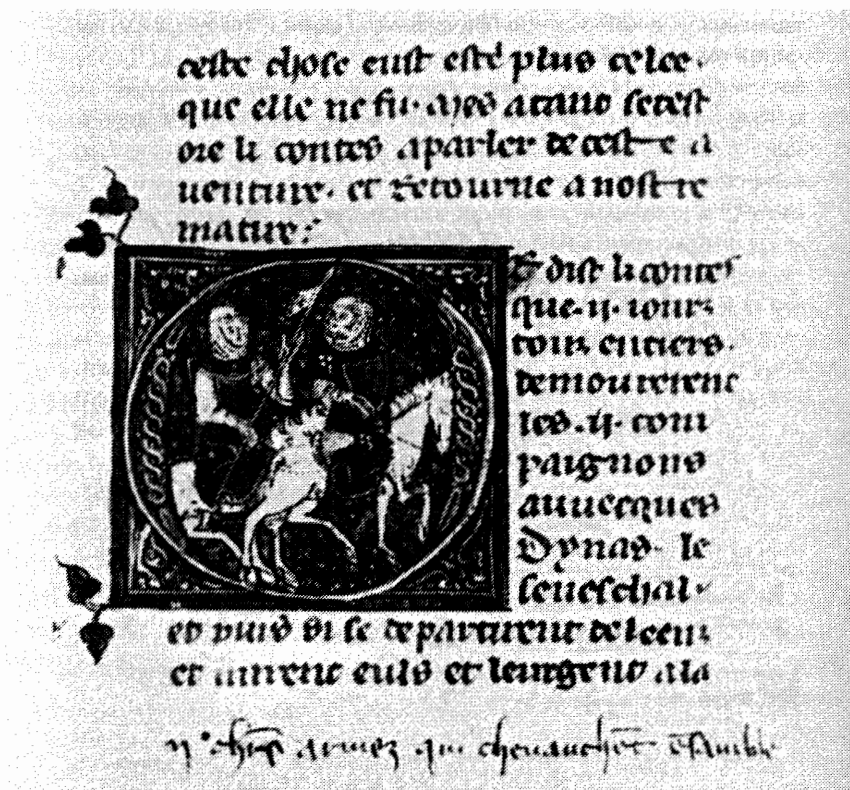 ceste chose eust esté plus celee.
que elle ne fu. Mes atant se test
ore li contes a parler de ceste a
uenture. et retourne a nostre
matire:
dist li contes
que .ii. iours
touz entiers.
demourerent
les .ii. com
paignons
auuecques
Dynas. le
seneschal.
et puis si se departirent de leenz
et eulz et a la
ii chlrs armez qui cheuauchent ensamble